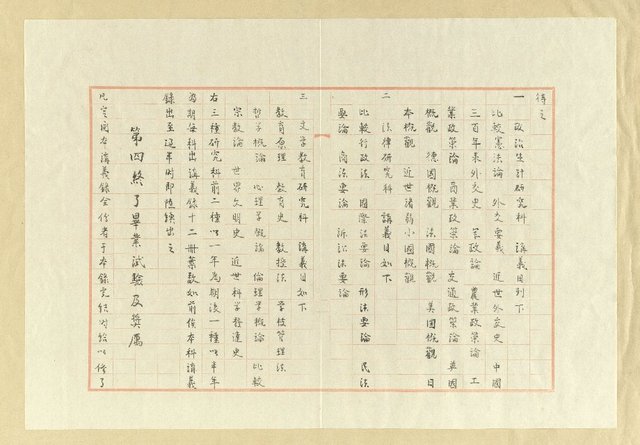 待之
一 政治生計研究科 講義目列下
比較憲法論 外交要義 近世外交史 中國
三百年來外交史 策政論 農業政策論 工
業政策論 商業政策論 交通政策論 英國
概觀 德國概觀 法國概觀 美國概觀 日
本概觀 近世諸弱小國概觀
二 法律研究科 講義目如下
比較行政法 國際法要論 形法要論 民法
要論 商法要論 訴訟法要論
三 文學教育研究科 講義目如下
教育原理 教育史 教授法 學校管理法
哲學概論 心理學概論 倫理學概論 比較
宗教論 世界文明史 近世科學發達史
右三種研究科前二種以一年為期後一種以半年
為期每科出講義錄十二冊葉數如前俟本科講義
錄出至逾年時即陸續出之
第四 終了畢業試驗及獎厲
凡定閱本講義錄全份者于本錄完結對於以修了